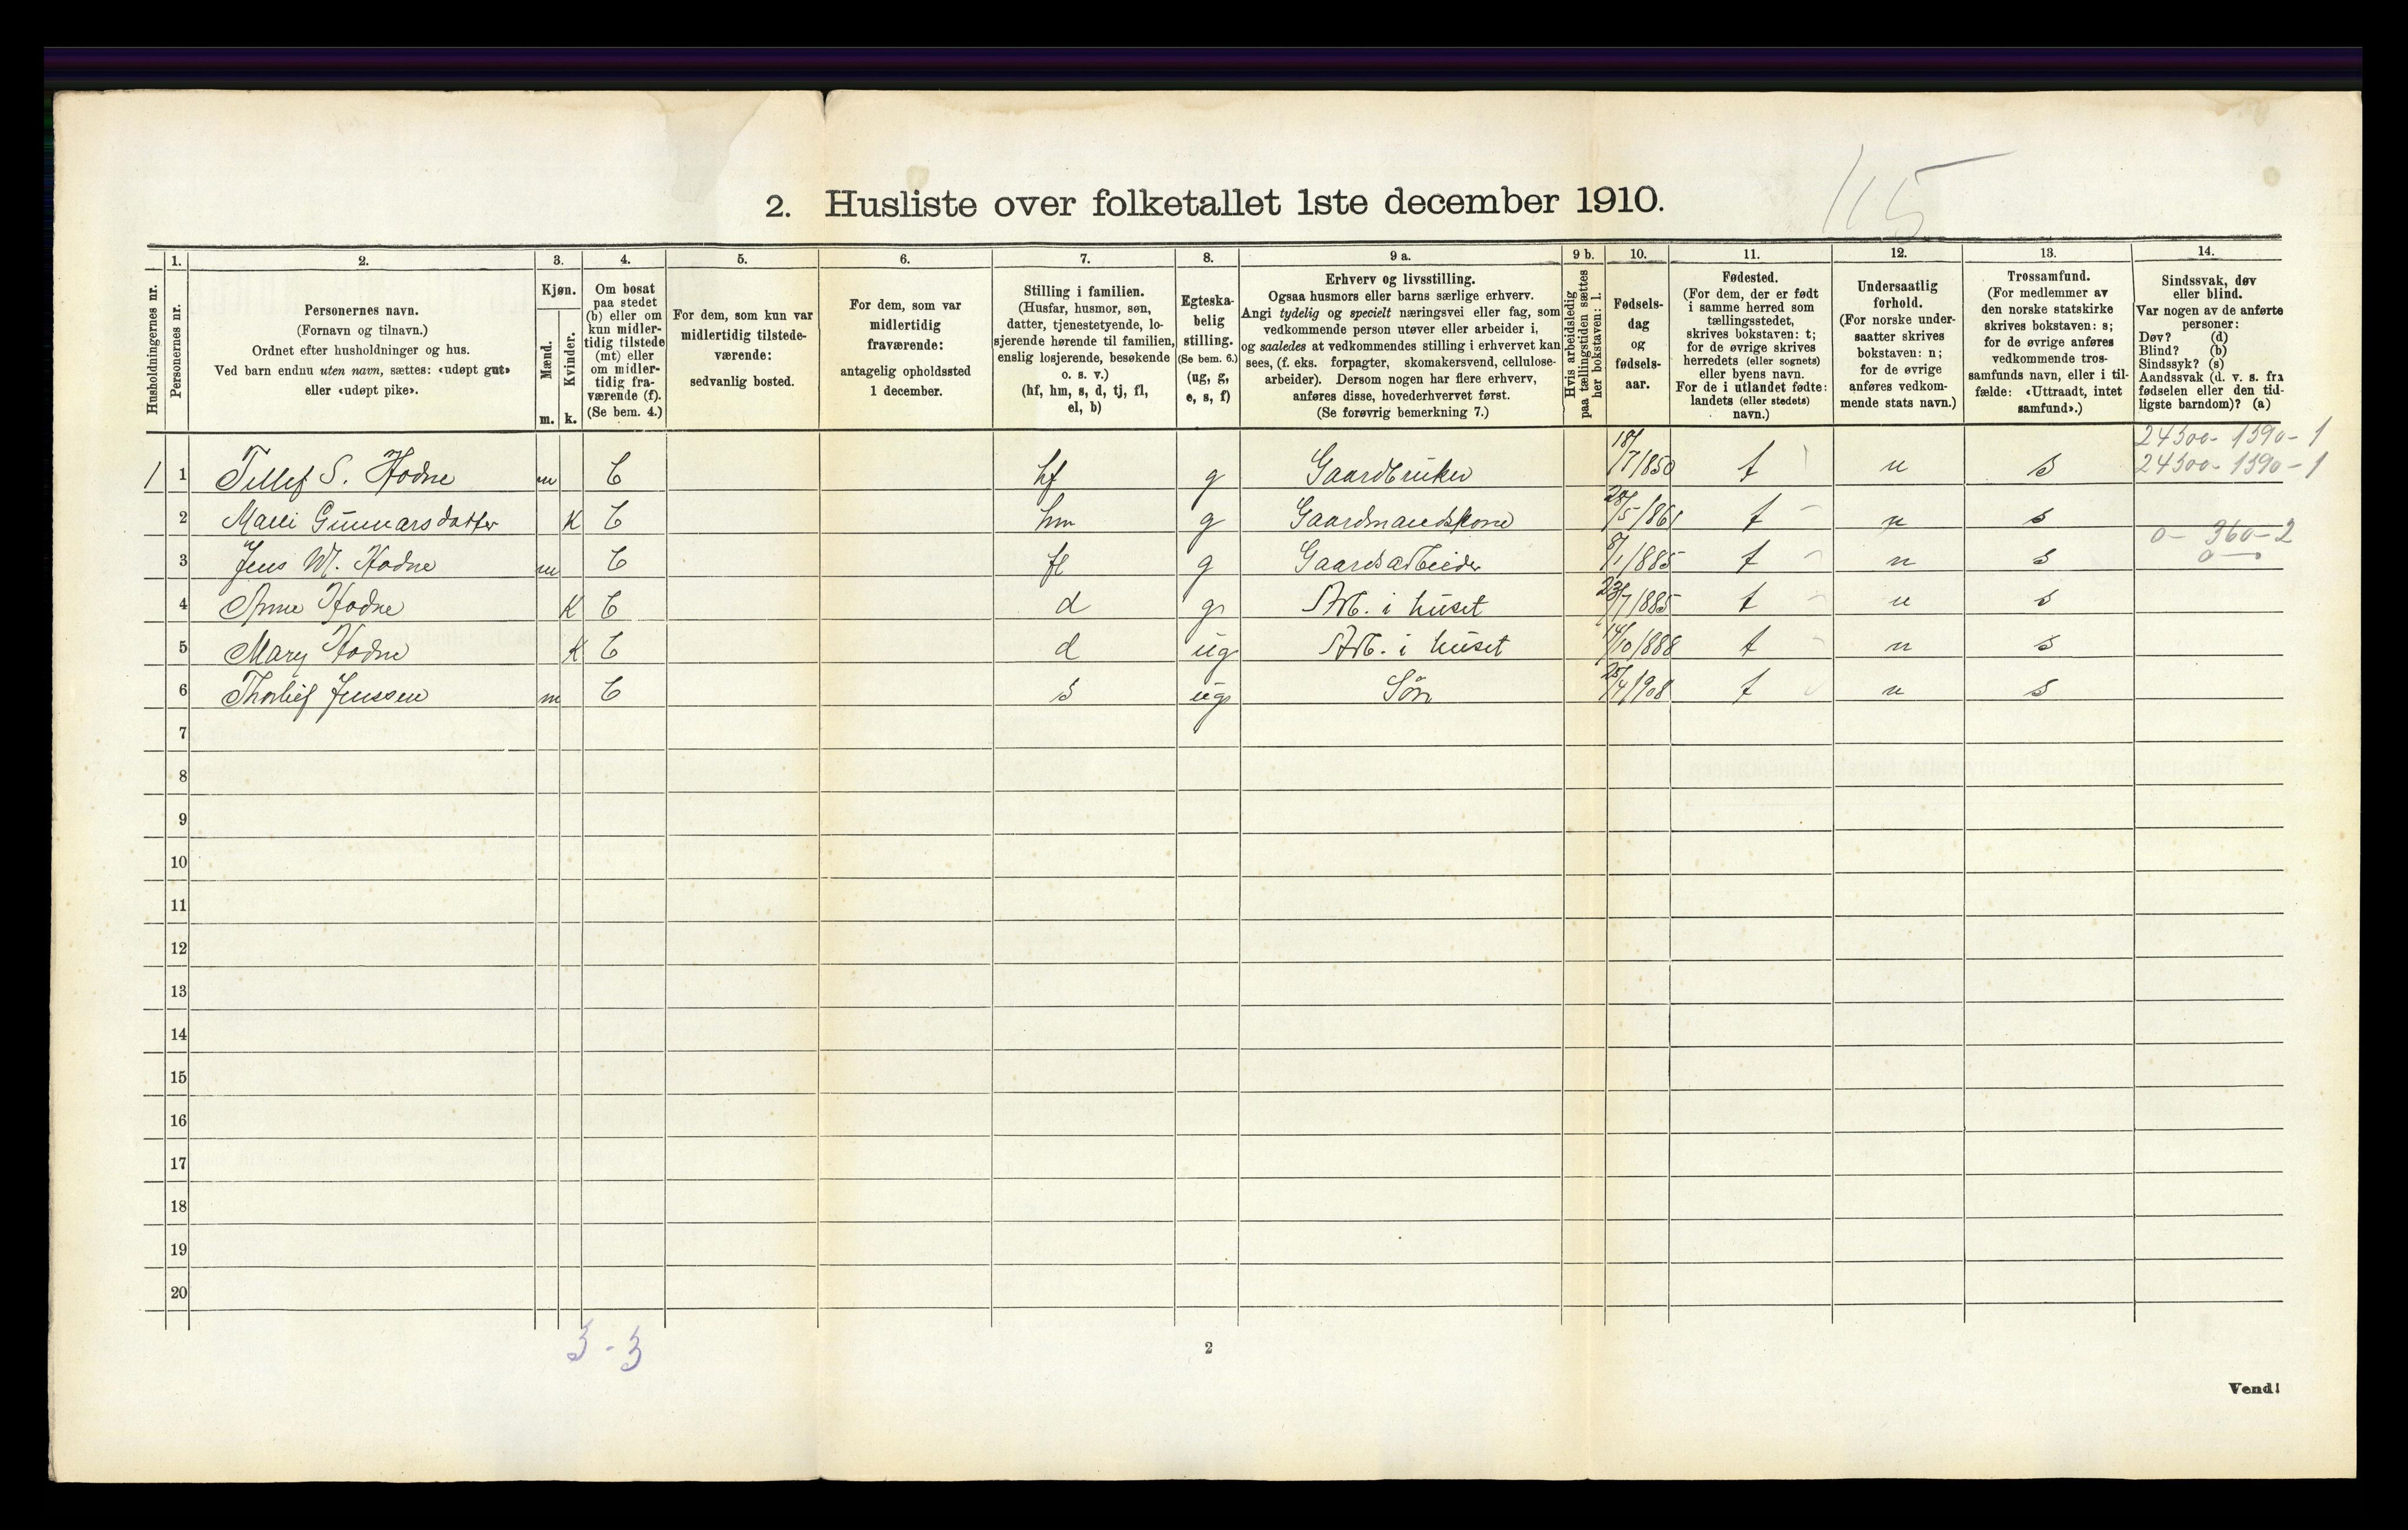 115
2. Husliste over folketallet 1ste december 1910.
Husholdningernes nr.
1. Personernes nr.
2. Personernes navn. (Fornavn og tilnavn.) Ordnet efter husholdninger og hus. Ved barn endnu uten navn, sættes: «udøpt gut» eller «udøpt pike».
3. Kjøn. Mænd. m. Kvinder. k.
4. Om bosat paa stedet (b) eller om kun midlertidig tilstede (mt) eller om midlertidig fraværende (f). (Se bem. 4.)
5. For dem, som kun var midlertidig tilstedeværende: sedvanlig bosted.
6. For dem, som var midlertidig fraværende: antagelig opholdssted 1 december.
7. Stilling i familien. (Husfar, husmor, søn, datter, tjenestetyende, losjerende hørende til familien, enslig losjerende, besøkende o. s. v.) (hf, hm, s, d, tj, fl, el, b)
8. Egteskabelig stilling. (Se bem. 6.) (ug, g, e, s, f)
9 a. Erhverv og livsstilling. Ogsaa husmors eller barns særlige erhverv. Angi tydelig og specielt næringsvei eller fag, som vedkommende person utøver eller arbeider i, og saaledes at vedkommendes stilling i erhvervet kan sees, (f. eks. forpagter, skomakersvend, cellulosearbeider). Dersom nogen har flere erhverv, anføres disse, hovederhvervet først. (Se forøvrig bemerkning 7.)
9 b. Hvis arbeidsledig paa tællingstiden sættes her bokstaven: l.
10. Fødselsdag og fødselsaar.
11. Fødested. (For dem, der er født i samme herred som tællingsstedet, skrives bokstaven: t; for de øvrige skrives herredets (eller sognets) eller byens navn. For de i utlandet fødte: landets (eller stedets) navn.)
12. Undersaatlig forhold. (For norske undersaatter skrives bokstaven: n; for de øvrige anføres vedkommende stats navn.)
13. Trossamfund. (For medlemmer av den norske statskirke skrives bokstaven: s; for de øvrige anføres vedkommende trossamfunds navn, eller i tilfælde: «Uttraadt, intet samfund».)
14. Sindssvak, døv eller blind. Var nogen av de anførte personer: Døv? (d) Blind? (b) Sindssyk? (s) Aandssvak (d. v. s. fra fødselen eller den tidligste barndom)? (a)
24300- 1390-1
1 1 Tellef S. Hodne m b hf g Gaardbruker 18/7 1850 t n s 24300- 1390-1
2 Malli Gunnarsdatter K b hm g Gaardmandskone 28/5 1861 t n s
0- 360-2
3 Jens M. Hodne m b fl g Gaardsarbeider 8/1 1885 t n s 0
4 Anne Hodne K b d g Arb. i huset 23/7 1885 t n s
5 Mary Hodne K b d ug Arb. i huset 14/10 1888 t n s
6 Thorleif Jenssen m b s ug Søn 25/4 1908 t n s
7
8
9
10
11
12
13
14
15
16
17
18
19
20
3-3
2
Vend!